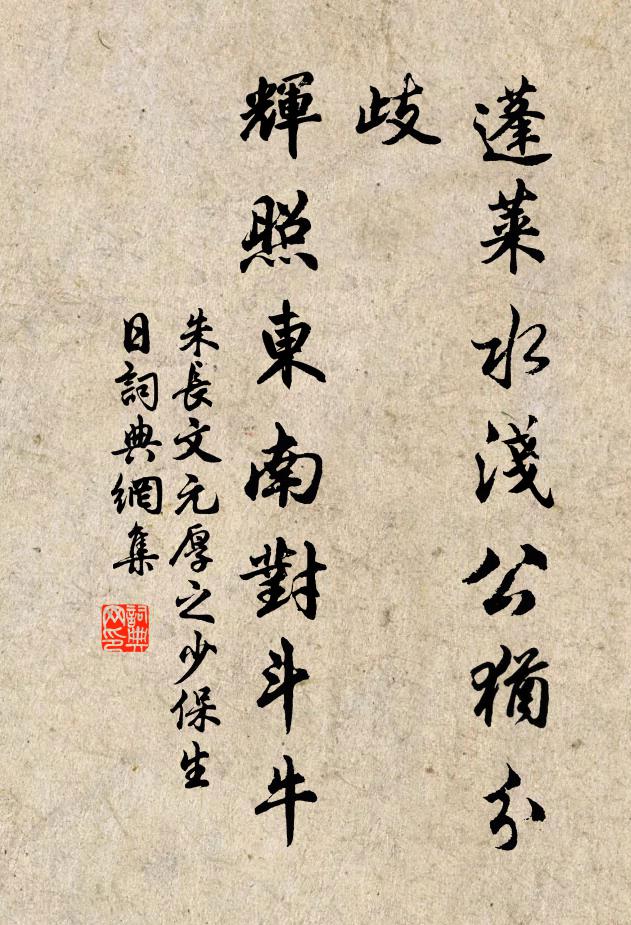 蓬萊水淺公猶分
歧
輝照東南對斗牛
朱長文元厚之少保生
日詞典網集
詞典網印